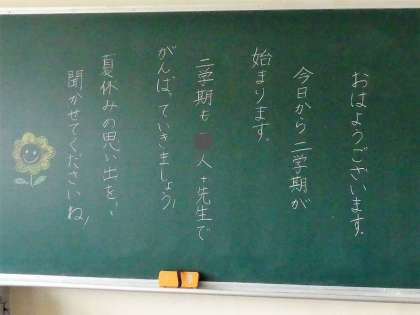 おはようございます。
今日から二学期が
始まります。
二学期も 人+先生で
がんばっていきましょう!
夏休みの思い出を…
聞かせてくださいね!